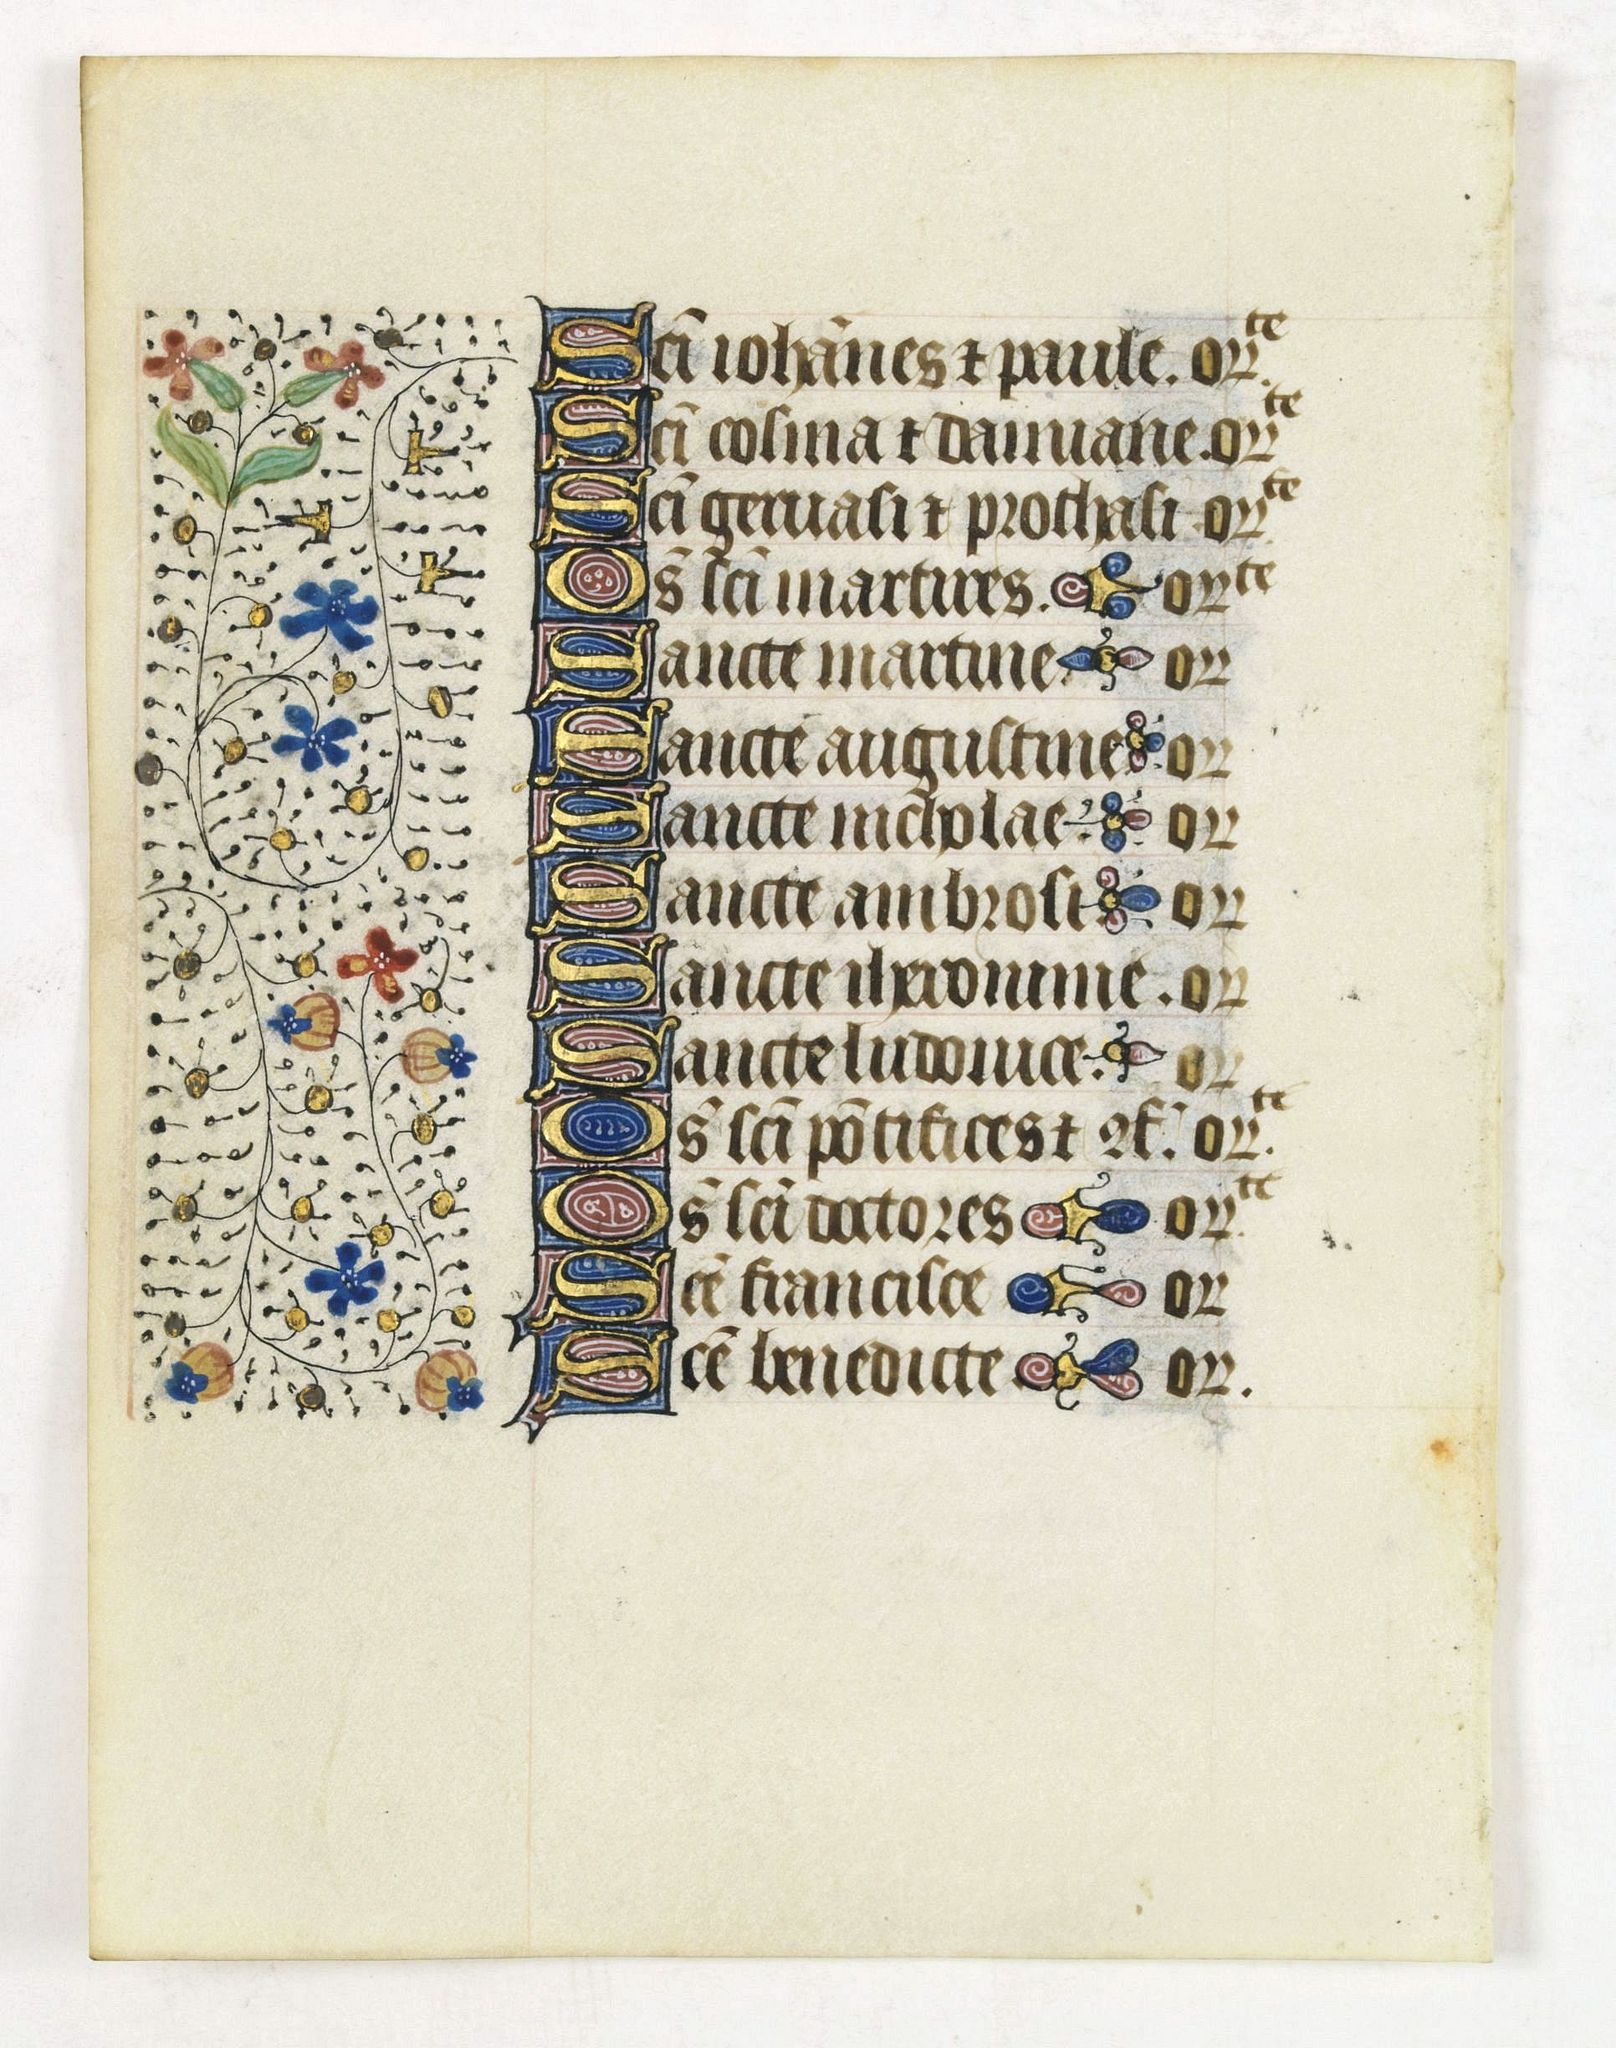 Sc̄i ioha̅nes ⁊ paule. orᵗᵉ.
Sc̄i cosma ⁊ damiane. orᵗᵉ
Sc̄i geruasi ⁊ prothasi orᵗᵉ.
Os̄ sc̄i martires. orᵗᵉ
Sancte martine or
Sancte augustine or
Sancte nicholae or
Sancte ambrosi or
Sancte iheronime. or
Sancte ludouice. or
Os̄ sc̄i po̅tifices ⁊ ꝯf. orᵗᵉ.
Os̄ sc̄i doctores orᵗᵉ.
Sce̅ francisce or
Sce̅ benedicte or.